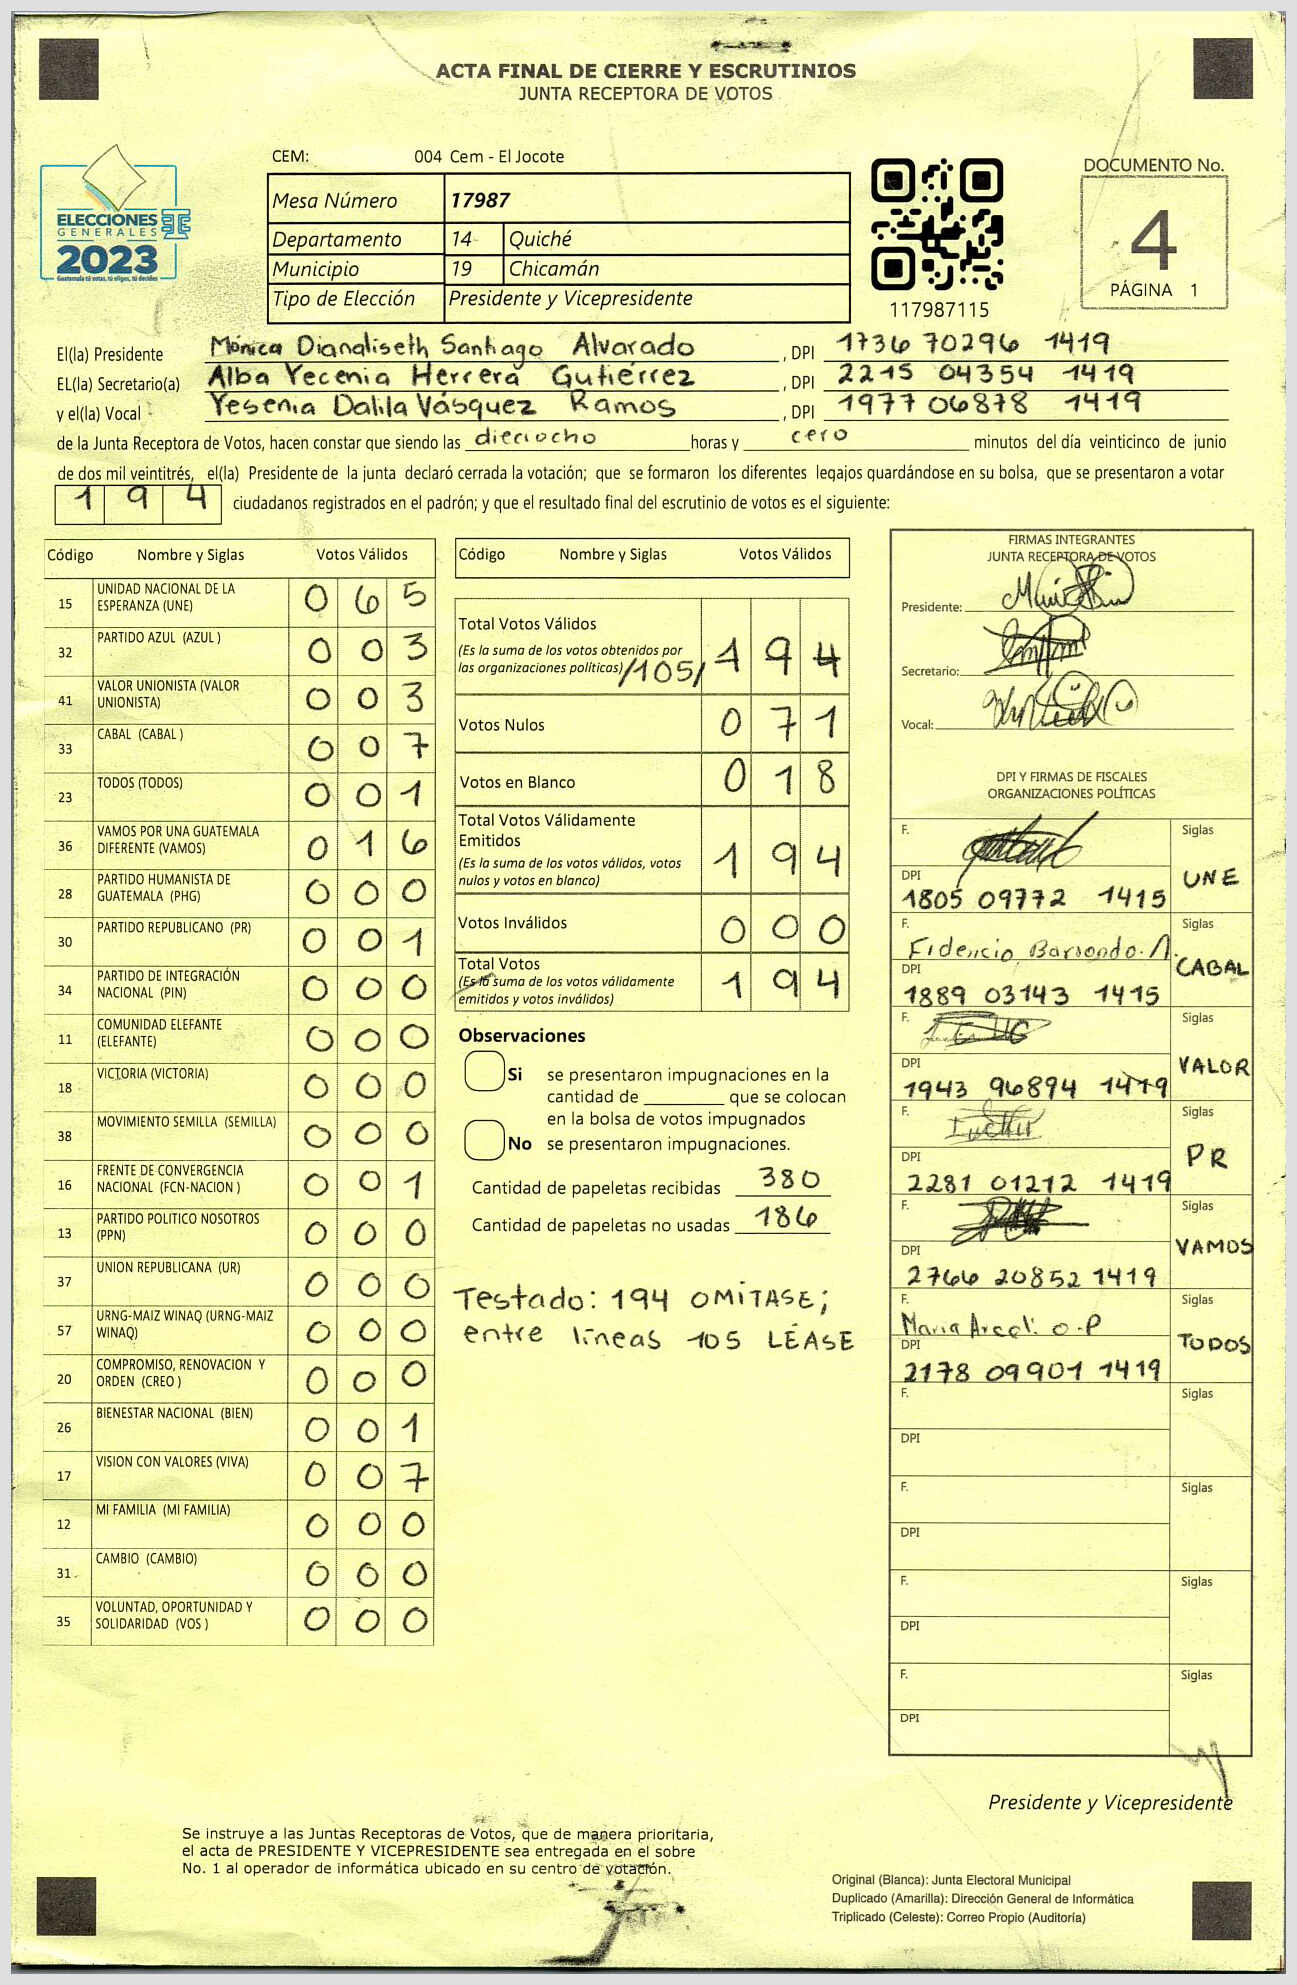 ACTA FINAL DE CIERRE Y ESCRUTINIOS
JUNTA RECEPTORA DE VOTOS
CEM: 004 Cem - El Jocote
Mesa Número 17987
Departamento 14 Quiché
Municipio 19 Chicamán
Tipo de Elección Presidente y Vicepresidente
ELECCIONES
GENERALES
2023
Guatemala tú votas, tú eliges, tú decides
117987115
DOCUMENTO No.
4
PÁGINA 1
El(la) Presidente Mónica Dianaliseth Santiago Alvarado , DPI 1736 70296 1419
EL(la) Secretario(a) Alba Yecenia Herrera Gutiérrez , DPI 2215 04354 1419
y el(la) Vocal Yesenia Dalila Vásquez Ramos , DPI 1977 06878 1419
de la Junta Receptora de Votos, hacen constar que siendo las dieciocho horas y cero minutos del día veinticinco de junio
de dos mil veintitrés, el(la) Presidente de la junta declaró cerrada la votación; que se formaron los diferentes legajos guardándose en su bolsa, que se presentaron a votar
194 ciudadanos registrados en el padrón; y que el resultado final del escrutinio de votos es el siguiente:
Código Nombre y Siglas Votos Válidos
15 UNIDAD NACIONAL DE LA ESPERANZA (UNE) 065
32 PARTIDO AZUL (AZUL ) 003
41 VALOR UNIONISTA (VALOR UNIONISTA) 003
33 CABAL (CABAL ) 007
23 TODOS (TODOS) 001
36 VAMOS POR UNA GUATEMALA DIFERENTE (VAMOS) 016
28 PARTIDO HUMANISTA DE GUATEMALA (PHG) 000
30 PARTIDO REPUBLICANO (PR) 001
34 PARTIDO DE INTEGRACIÓN NACIONAL (PIN) 000
11 COMUNIDAD ELEFANTE (ELEFANTE) 000
18 VICTORIA (VICTORIA) 000
38 MOVIMIENTO SEMILLA (SEMILLA) 000
16 FRENTE DE CONVERGENCIA NACIONAL (FCN-NACION ) 001
13 PARTIDO POLITICO NOSOTROS (PPN) 000
37 UNION REPUBLICANA (UR) 000
57 URNG-MAIZ WINAQ (URNG-MAIZ WINAQ) 000
20 COMPROMISO, RENOVACION Y ORDEN (CREO ) 000
26 BIENESTAR NACIONAL (BIEN) 001
17 VISION CON VALORES (VIVA) 007
12 MI FAMILIA (MI FAMILIA) 000
31 CAMBIO (CAMBIO) 000
35 VOLUNTAD, OPORTUNIDAD Y SOLIDARIDAD (VOS ) 000
Código Nombre y Siglas Votos Válidos
Total Votos Válidos
(Es la suma de los votos obtenidos por
las organizaciones políticas) /105/ 194
Votos Nulos 071
Votos en Blanco 018
Total Votos Válidamente
Emitidos
(Es la suma de los votos válidos, votos
nulos y votos en blanco) 194
Votos Inválidos 000
Total Votos
(Es la suma de los votos válidamente
emitidos y votos inválidos) 194
Observaciones
Si se presentaron impugnaciones en la
cantidad de ________ que se colocan
en la bolsa de votos impugnados
No se presentaron impugnaciones.
Cantidad de papeletas recibidas 380
Cantidad de papeletas no usadas 186
Testado: 194 OMÍTASE;
entre líneas 105 LÉASE
FIRMAS INTEGRANTES
JUNTA RECEPTORA DE VOTOS
Presidente:
Secretario:
Vocal:
DPI Y FIRMAS DE FISCALES
ORGANIZACIONES POLÍTICAS
F. Siglas
DPI UNE
1805 09772 1415
F. Fidencio Siglas
DPI CABAL
1889 03143 1415
F. Siglas
DPI VALOR
1943 96894 1419
F. Siglas
DPI PR
2281 01212 1419
F. Siglas
DPI VAMOS
2766 20852 1419
F. Maria O.P Siglas
DPI TODOS
2178 09901 1419
F. Siglas
DPI
F. Siglas
DPI
F. Siglas
DPI
F. Siglas
DPI
Presidente y Vicepresidente
Se instruye a las Juntas Receptoras de Votos, que de manera prioritaria,
el acta de PRESIDENTE Y VICEPRESIDENTE sea entregada en el sobre
No. 1 al operador de informática ubicado en su centro de votación.
Original (Blanca): Junta Electoral Municipal
Duplicado (Amarilla): Dirección General de Informática
Triplicado (Celeste): Correo Propio (Auditoría)